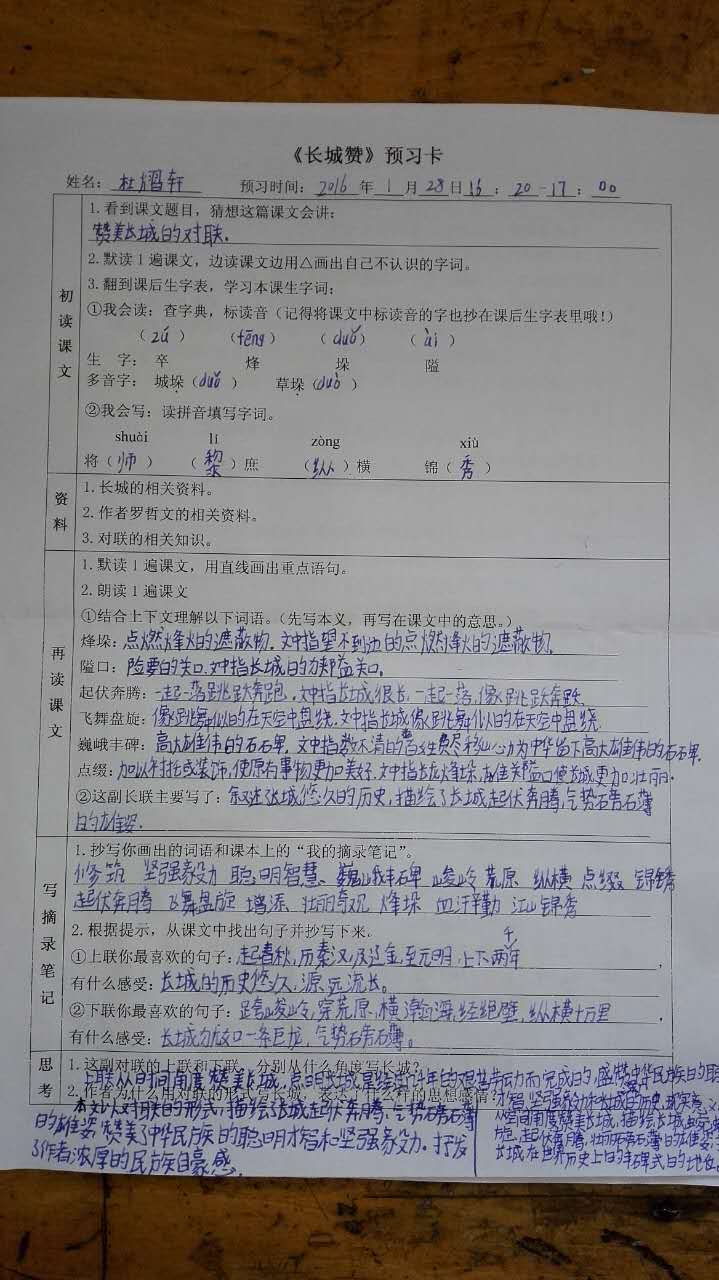 《长城赞》预习卡
姓名：杜熠轩 预习时间：2016年1月28日16：20-17：00
初读课文
1.看到课文题目，猜想这篇课文会讲：
赞美长城的对联。
2.默读1遍课文，边读课文边用△画出自己不认识的字词。
3.翻到课后生字表，学习本课生字词：
①我会读：查字典，标读音（记得将课文中标读音的字也抄在课后生字表里哦！）
（zú）（fēng）（duǒ）（ài）
生 字：卒 烽 垛 隘
多音字：城垛（duǒ） 草垛（duò）
②我会写：读拼音填写字词。
shuài lí zòng xiù
将（帅）（黎）庶（纵）横 锦（秀）
资料
1.长城的相关资料。
2.作者罗哲文的相关资料。
3.对联的相关知识。
再读课文
1.默读1遍课文，用直线画出重点语句。
2.朗读1遍课文
①结合上下文理解以下词语。（先写本义，再写在课文中的意思。）
烽垛：点燃烽火的遮蔽物。文中指望不到边的点燃烽火的遮蔽物。
隘口：险要的关口。文中指长城的雄关隘口。
起伏奔腾：一起一落跳跃奔跑，文中指长城很长，一起一落，像跳跃奔跃
飞舞盘旋：像跳舞似的在天空中盘绕。文中指长城像跳舞似的在天空中盘绕
巍峨丰碑：高大雄伟的石碑。文中指数不清的畜生费尽移心力为中华留下高大雄伟的石碑。
点缀：加以衬托或装饰，使原有事物更加美好。文中指长城烽垛，雄关隘口使长城更加壮丽。
②这副长联主要写了：叙述长城悠久的历史，描绘了长城起伏奔腾，气势磅礴
的雄姿。
写摘录笔记
1.抄写你画出的词语和课本上的“我的摘录笔记”。
修筑 坚强毅力 聪明智慧 巍峨丰碑 峻岭 荒原 纵横 点缀 锦绣
起伏奔腾 飞舞盘旋 增添 壮丽奇观 烽垛 血汗辛勤 江山锦秀
2.根据提示，从课文中找出句子并抄写下来。
①上联你最喜欢的句子：起春秋，历秦汉，及辽金，至元明，上下两千年，
有什么感受：长城的历史悠久，源远流长。
②下联你最喜欢的句子：跨峻岭，穿荒原，横瀚海，经绝壁，纵横十万里，
有什么感受：长城宛如一条巨龙，气势磅礴。
思考
1.这副对联的上联和下联，分别从什么角度写长城？
上联从时间角度赞美长城，点明长城是经过千年的艰苦劳动而完成的，盛赞中华民族的聪
明才智、坚强毅力和长城的历史、现实意义
从空间角度赞美长城，描绘长城
旋、起伏奔腾、壮丽磅礴的雄姿
长城在世界历史上的丰碑式的地位。
2.作者为什么用对联的形式写长城，表达了什么样的思想感情？
本文以对联的形式，描绘了长城起伏奔腾、气势磅礴
的雄姿，赞美了中华民族的聪明才智和坚强毅力。抒发
了作者浓厚的民族自豪感。